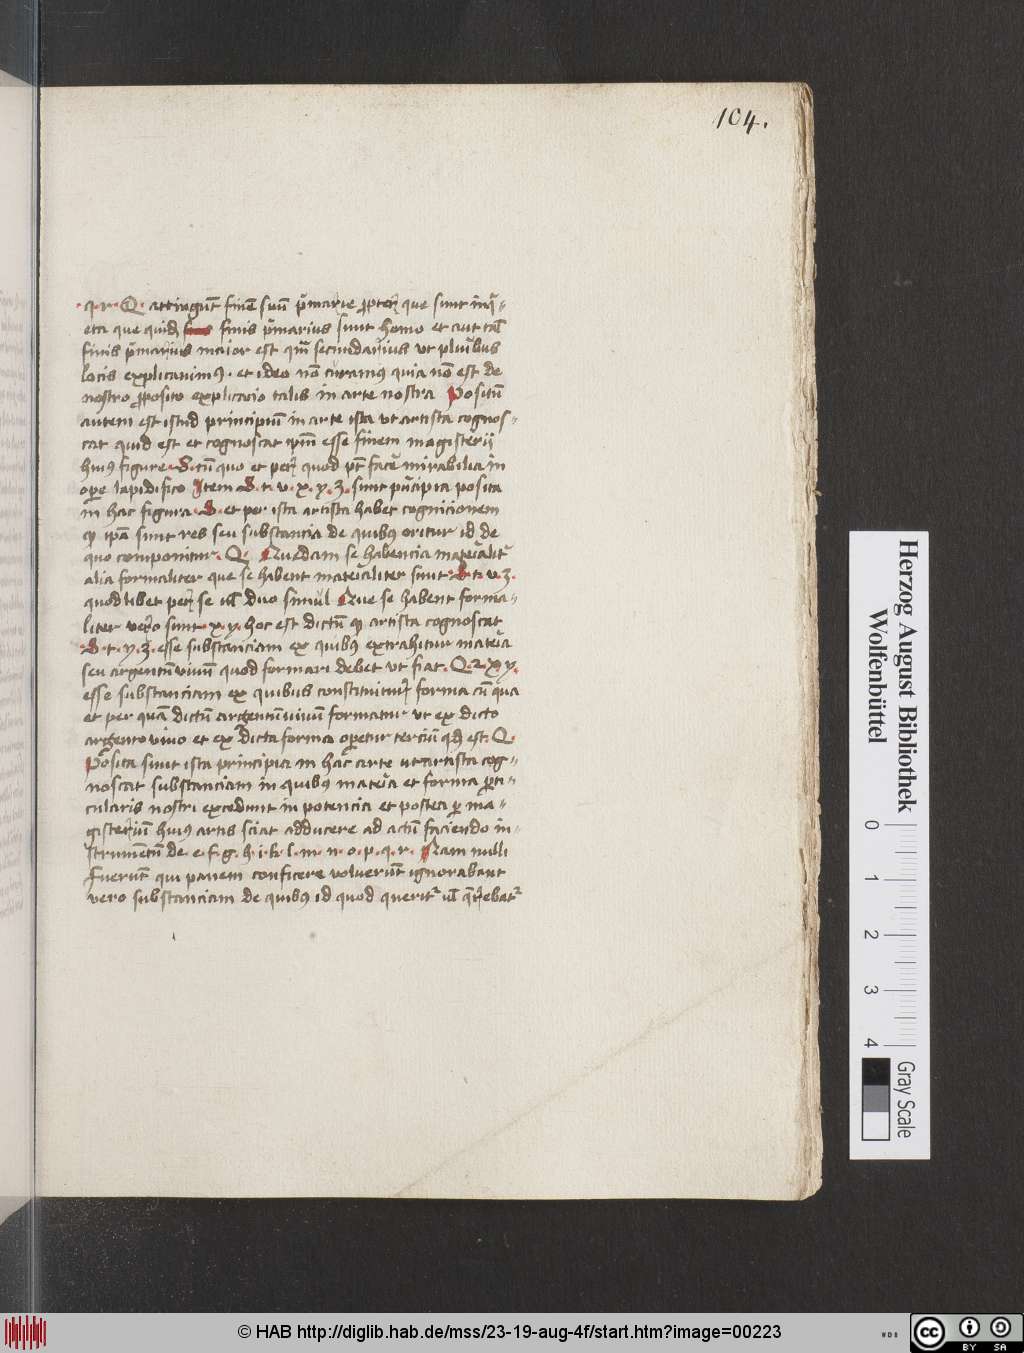 104.
·q·r·Q· attingūt finē suū p̄marie ꝓpter que sunt in q̄-
eta que quidē finis p̄marius sunt homo et aut talē
finis p̄marius maior est qm̄ secundarius ut pluribus
locis explicauimꝰ · et ideo nō curamus quia nō est de
nostro ꝓposito explicacio talis in arte nostra Positū
autem est istud principiū in arte ista ut artista cognos-
cat quid est et cognoscat ipm̄ esse finem magisterij
huiꝰ figure ·S· cū quo et per quod pt̄ facē mirabilia in
oꝑe lapidifico Item ·S· t· v· x· y· z· sunt pn̄cipia posita
in hac figura ·S· et per ista artista habet cognicionem
ꝙ ipā sunt res seu substancia de quibꝰ oritur id de
quo componitur ·Q· Quedam se habencia mat̄ialit̄
alia formaliter que se habent mat̄ialiter sunt ·S· t· v· z·
quodlibet per se ul̄ duo simul Que se habent forma-
liter vero sunt ·x· y· hoc est dictū ꝙ artista cognoscat
·S· t· y· z· esse substanciam ex quibꝰ extrahitur mat̄ia
seu argentū viuū quod formari debet ut fiat ·Q· 2· x· y·
esse substanciam ex quibus constituitur forma cū qua
et per quā dictū argentū uiuū formatur ut ex dicto
argento viuo et ex dicta forma oꝑetur terciū qd̄ est ·Q·
Posita sunt ista principia in hac arte ut artista cog-
noscat substanciam in quibꝰ mat̄ia et forma ꝑti-
cularis nostri excedunt in potencia et postea ꝑ ma-
gisteriū huiꝰ artis sciat adducere ad actū faciendo in-
strumētū de ·e· f· g· h· i· k· l· m· n· o· p· q· r· Nam nulli
fuerūt qui panem conficere voluerūt ignorabant
vero substanciam de quibꝰ id quod querit᷑ ul̄ q̄rebat᷑
Herzog August Bibliothek
Wolfenbüttel
0 1 2 3 4
Gray Scale
© HAB http://diglib.hab.de/mss/23-19-aug-4f/start.htm?image=00223
WDB
cc BY SA